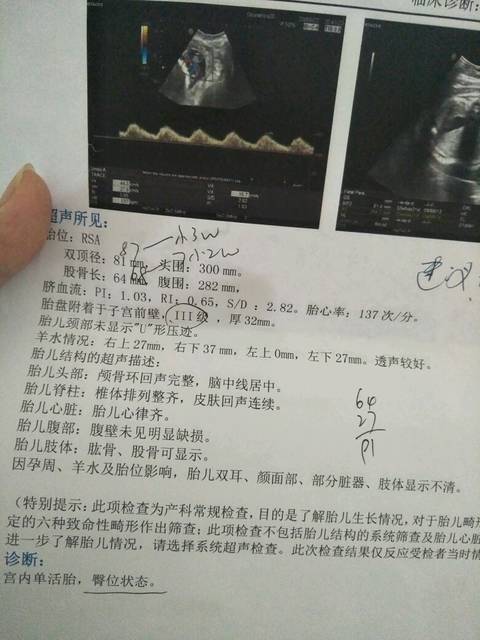 临床诊断：
超声所见：
胎位：RSA
87 小3W
双顶径：81mm，头围：300mm。
68 小2W
股骨长：64mm，腹围：282mm，
建议
脐血流：PI：1.03，RI：0.65，S/D：2.82。胎心率：137次/分。
胎盘附着于子宫前壁，III级，厚32mm。
胎儿颈部未显示"U"形压迹。
羊水情况：右上27mm，右下37mm，左上0mm，左下27mm。透声较好。
胎儿结构的超声描述：
胎儿头部：颅骨环回声完整，脑中线居中。
胎儿脊柱：椎体排列整齐，皮肤回声连续。
胎儿心脏：胎儿心律齐。
胎儿腹部：腹壁未见明显缺损。
胎儿肢体：肱骨、股骨可显示。
64
27
91
因孕周、羊水及胎位影响，胎儿双耳、颜面部、部分脏器、肢体显示不清。
（特别提示：此项检查为产科常规检查，目的是了解胎儿生长情况，对于胎儿畸
定的六种致命性畸形作出筛查；此项检查不包括胎儿结构的系统筛查及胎儿心脏
进一步了解胎儿情况，请选择系统超声检查。此次检查结果仅反应受检者当时情
诊断：
宫内单活胎，臀位状态。